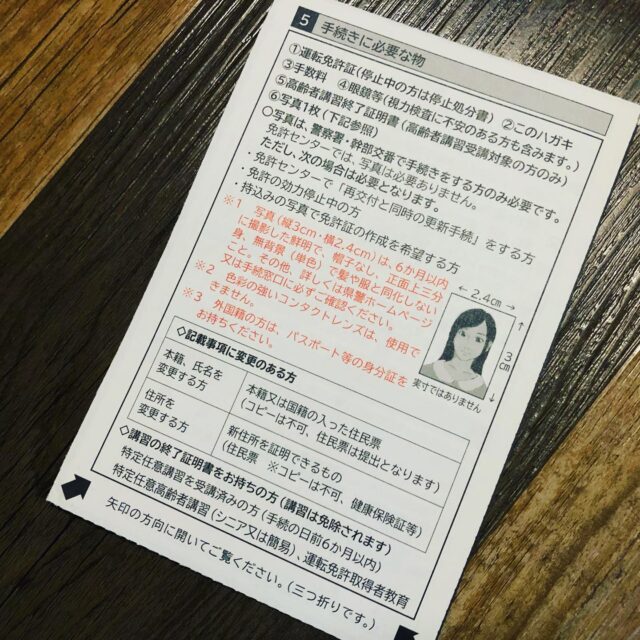 5 手続きに必要な物
①運転免許証(停止中の方は停止処分書) ②このハガキ
③手数料 ④眼鏡等(視力検査に不安のある方も含みます。)
⑤高齢者講習終了証明書(高齢者講習受講対象の方のみ)
⑥写真1枚(下記参照)
○写真は、警察署・幹部交番で手続きをする方のみ必要です。
免許センターでは、写真は必要ありません。
ただし、次の場合は必要となります。
・免許センターで「再交付と同時の更新手続」をする方
・免許の効力停止中の方
・持込みの写真で免許証の作成を希望する方
※1 写真(縦3cm・横2.4cm)は、6か月以内
に撮影した鮮明で、帽子なし、正面上三分
身、無背景(単色)で髪や服と同化しない
こと。その他、詳しくは県警ホームページ
又は手続窓口に必ずご確認ください。
※2 色彩の強いコンタクトレンズは、使用で
きません。
※3 外国籍の方は、パスポート等の身分証を
お持ちください。
← 2.4㎝ →
↑
3㎝
↓
実寸ではありません
◇記載事項に変更のある方
本籍、氏名を
変更する方
本籍又は国籍の入った住民票
(コピーは不可、住民票は提出となります)
住所を
変更する方
新住所を証明できるもの
(住民票 ※コピーは不可、健康保険証等)
◇講習の終了証明書をお持ちの方(講習は免除されます)
特定任意講習を受講済みの方(手続の日前6か月以内)
特定任意高齢者講習(シニア又は簡易)、運転免許取得者教育
矢印の方向に開いてご覧ください。(三つ折りです。)